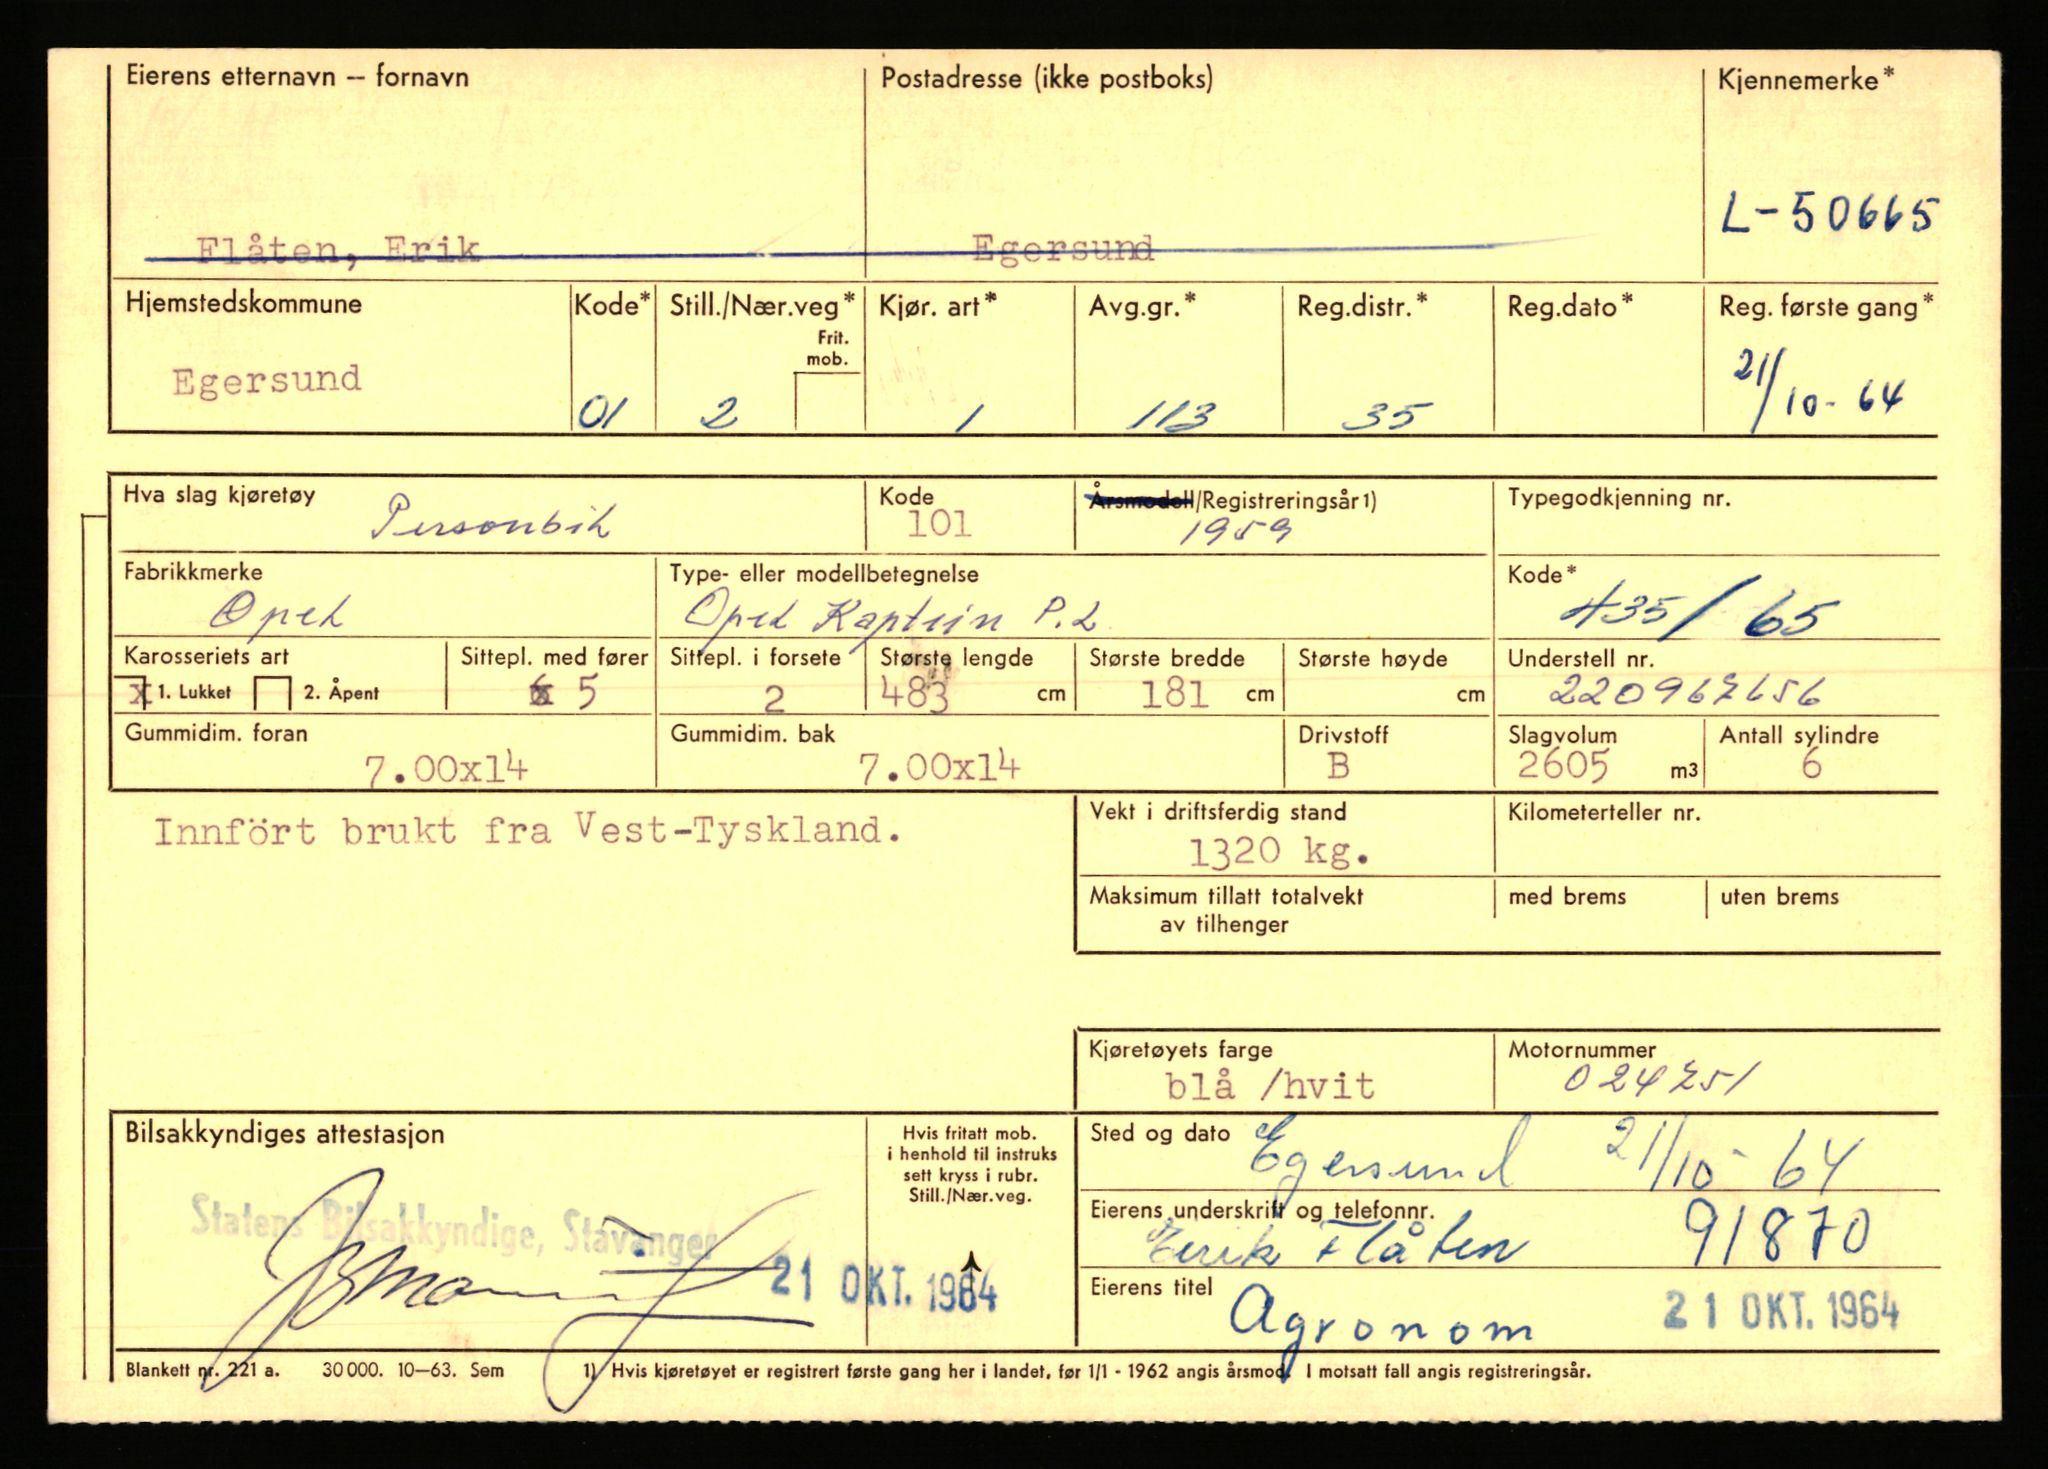 Eierens etternavn -- fornavn Postadresse (ikke postboks) Kjennemerke*
L-50665
Flåten, Erik Egersund
Hjemstedskommune Kode* Still./Nær.veg* Kjør. art* Avg.gr.* Reg.distr.* Reg.dato* Reg. første gang*
Frit. mob.
Egersund 01 2 1 113 35 21/10-64
Hva slag kjøretøy Kode Årsmodell/Registreringsår1) Typegodkjenning nr.
Personbil 101 1959
Fabrikkmerke Type- eller modellbetegnelse Kode*
Opel Opel Kaptein P.2 435/65
Karosseriets art Sittepl. med fører Sittepl. i forsete Største lengde Største bredde Største høyde Understell nr.
x 1. Lukket 2. Åpent 5 2 483 cm 181 cm cm 220967656
Gummidim. foran Gummidim. bak Drivstoff Slagvolum Antall sylindre
7.00x14 7.00x14 B 2605 m3 6
Innfört brukt fra Vest-Tyskland.
Vekt i driftsferdig stand Kilometerteller nr.
1320 kg.
Maksimum tillatt totalvekt med brems uten brems
av tilhenger
Kjøretøyets farge Motornummer
blå /hvit 024751
Bilsakkyndiges attestasjon
Hvis fritatt mob.
i henhold til instruks
sett kryss i rubr.
Still./Nær.veg.
Statens Bilsakkyndige, Stavanger
21 OKT. 1964
Sted og dato Egersund 21/10-64
Eierens underskrift og telefonnr.
Erik Flåten 91870
Eierens titel
Agronom 21 OKT. 1964
Blankett nr. 221 a. 30 000. 10—63. Sem 1) Hvis kjøretøyet er registrert første gang her i landet, før 1/1 - 1962 angis årsmod. I motsatt fall angis registreringsår.